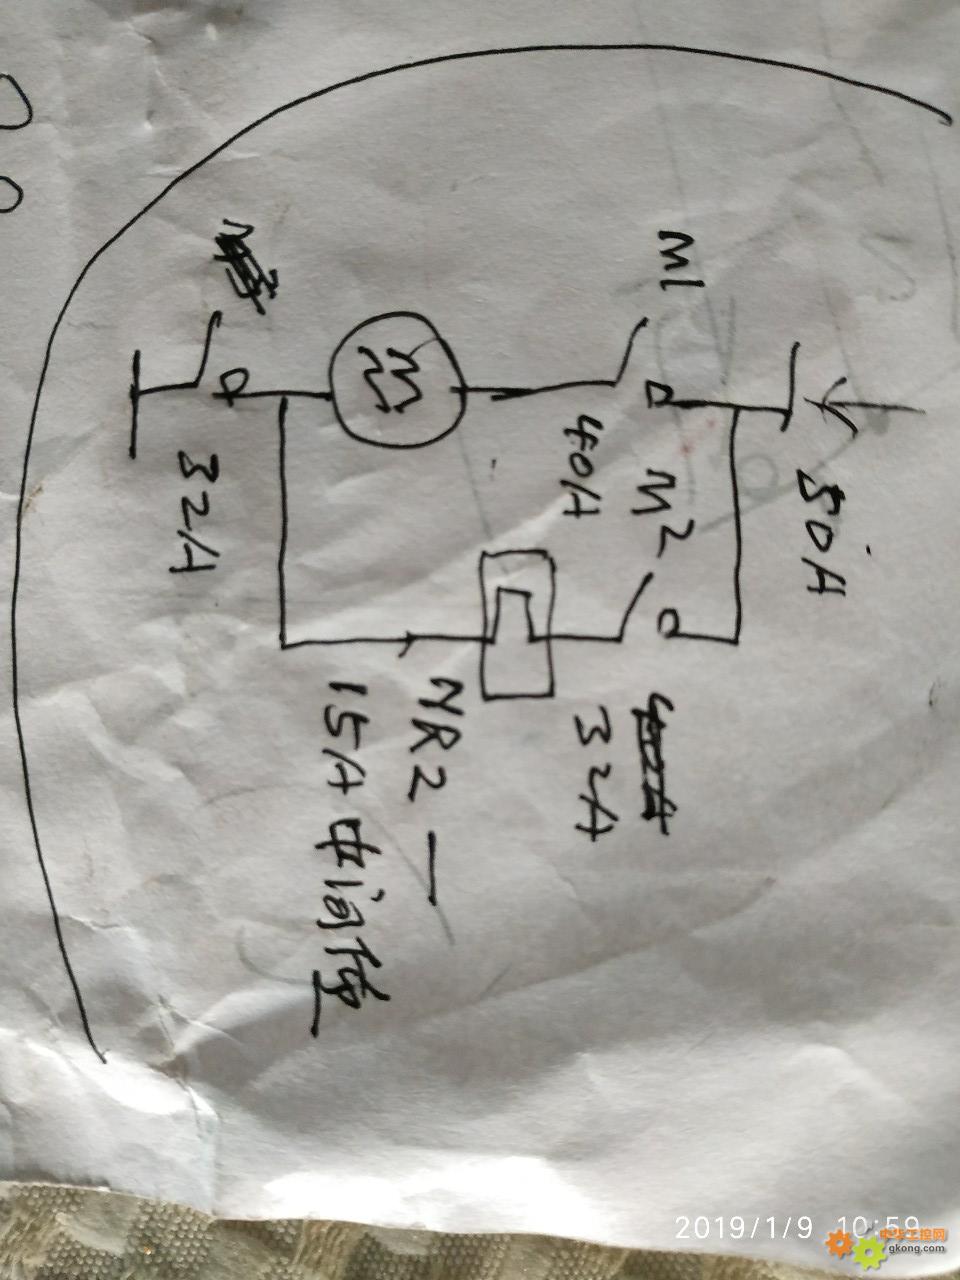 50A
M1
40A
M2
32A
M
NR2 —
15A 中间值
32A
2019/1/9 10:59
中华工控网
gkong.com